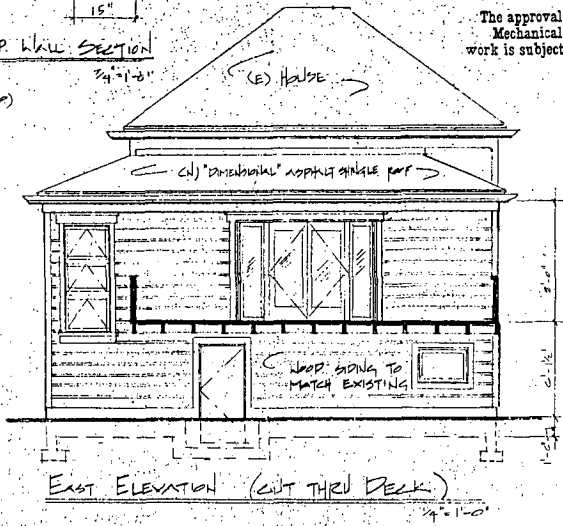 15"
P. WALL SECTION
3/4"=1'-0"
The approval
Mechanical
work is subject
(E) HOUSE
(N) "DIMENSIONAL" ASPHALT SHINGLE ROOF
WOOD SIDING TO
MATCH EXISTING
EAST ELEVATION (CUT THRU DECK)
1/4"=1'-0"